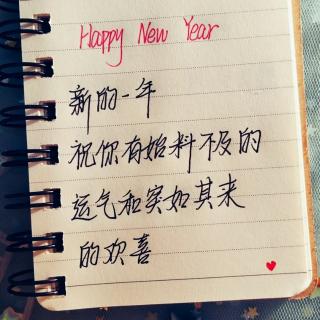 Happy New Year
新的一年
祝你有始料不及的
运气和突如其来
的欢喜